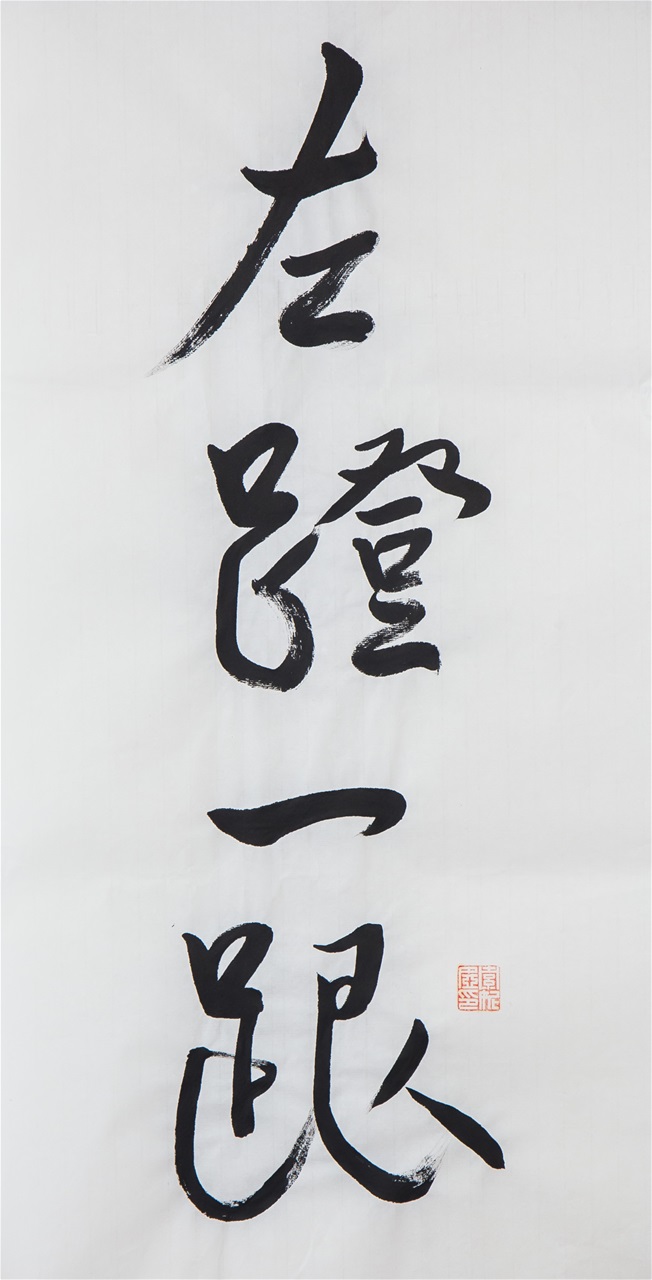 左蹬一跟